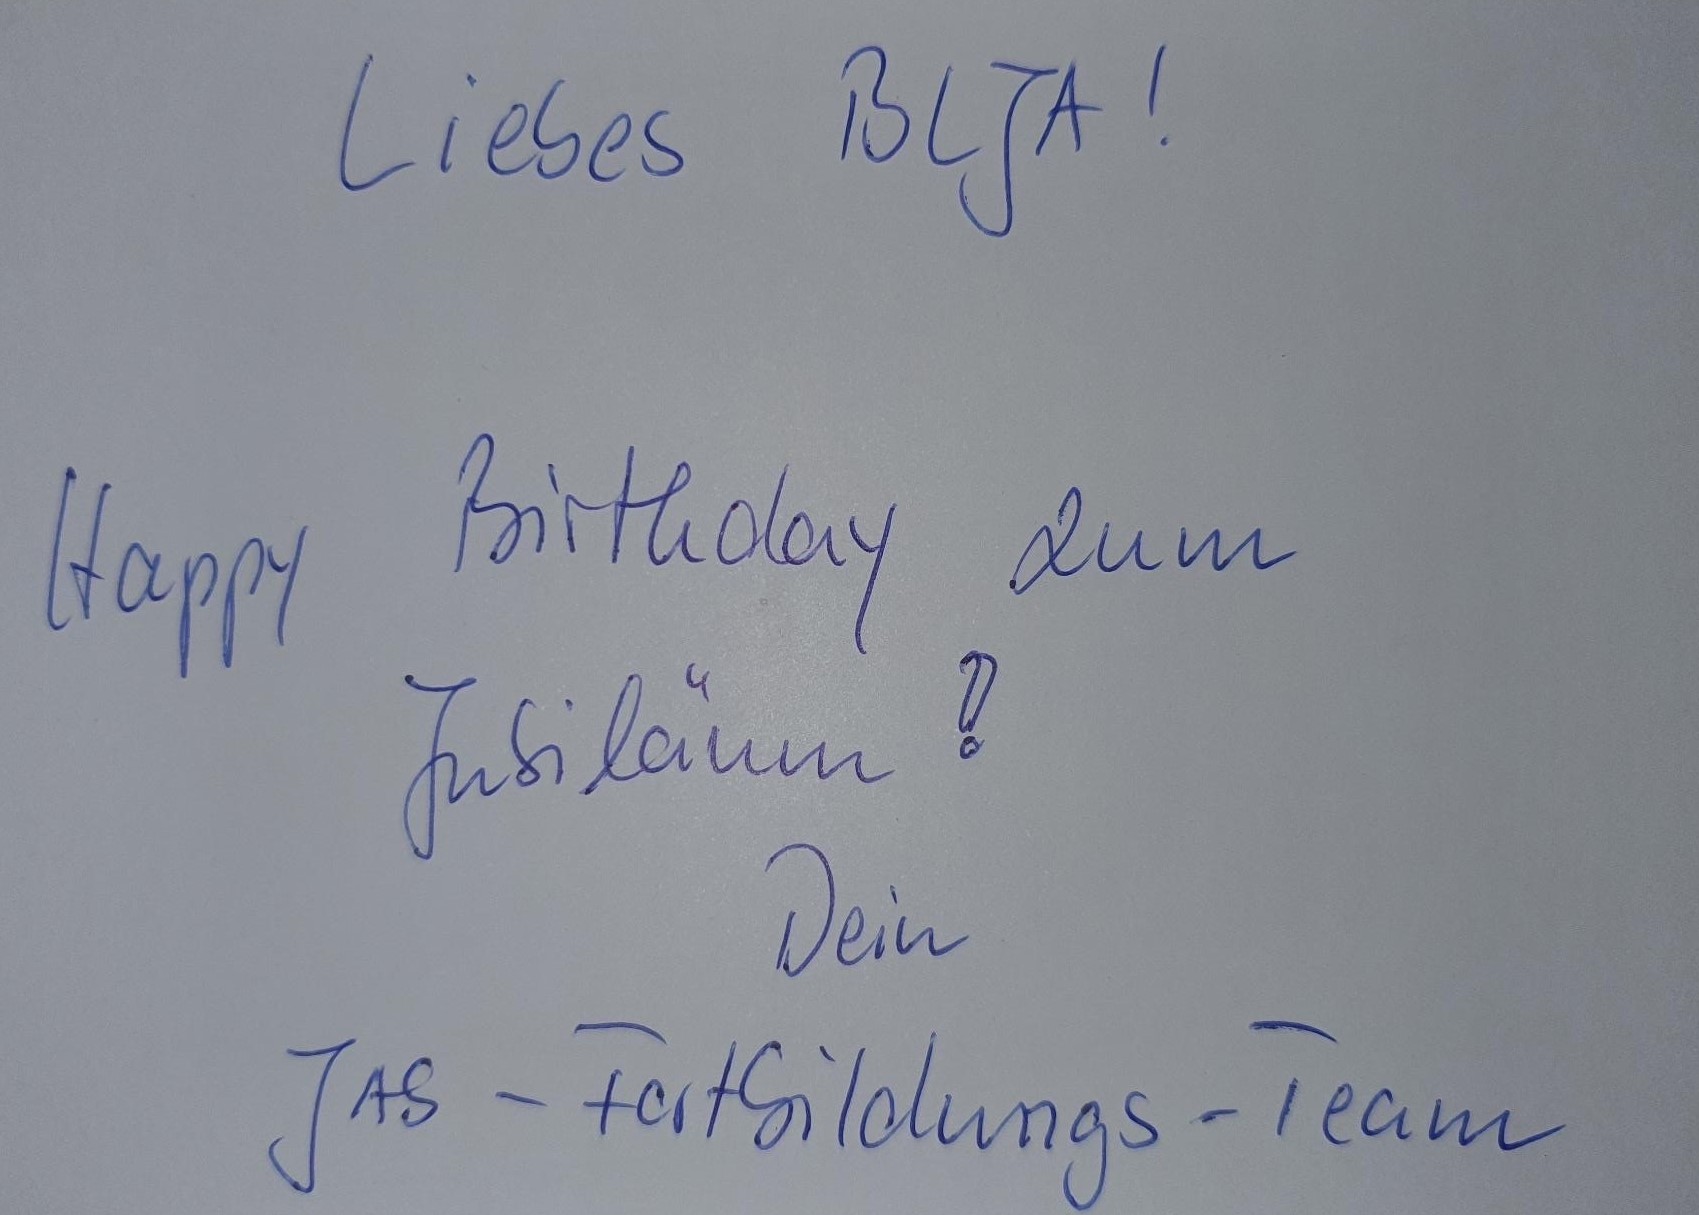 Liebes BLJA!
Happy Birthday zum
Jubiläum!
Dein
JAS - Fortbildungs - Team